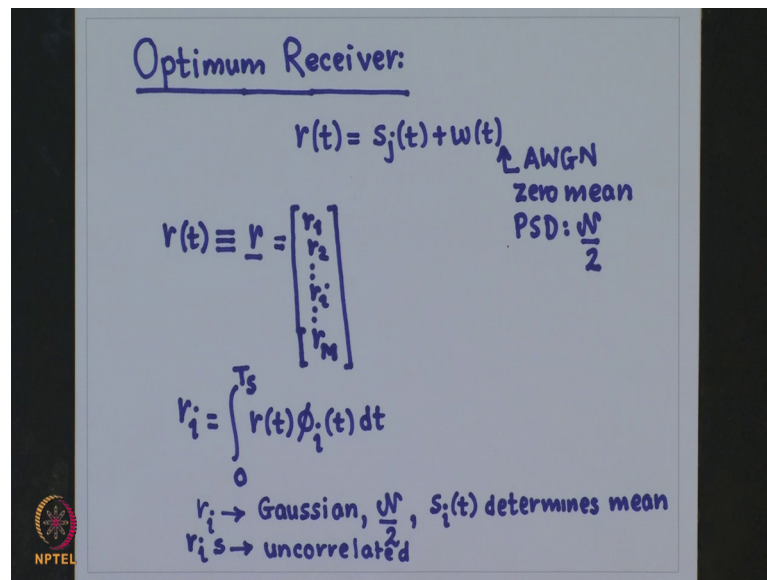 Optimum Receiver:
r(t) = s_j(t) + w(t)
AWGN
zero mean
PSD: 𝒩/2
r(t) ≡ r = [r_1 r_2 ⋮ r_i ⋮ r_M]
r_i = ∫_0^{T_S} r(t) ϕ_i(t) dt
r_i → Gaussian, 𝒩/2, s_i(t) determines mean
r_i s → uncorrelated
NPTEL